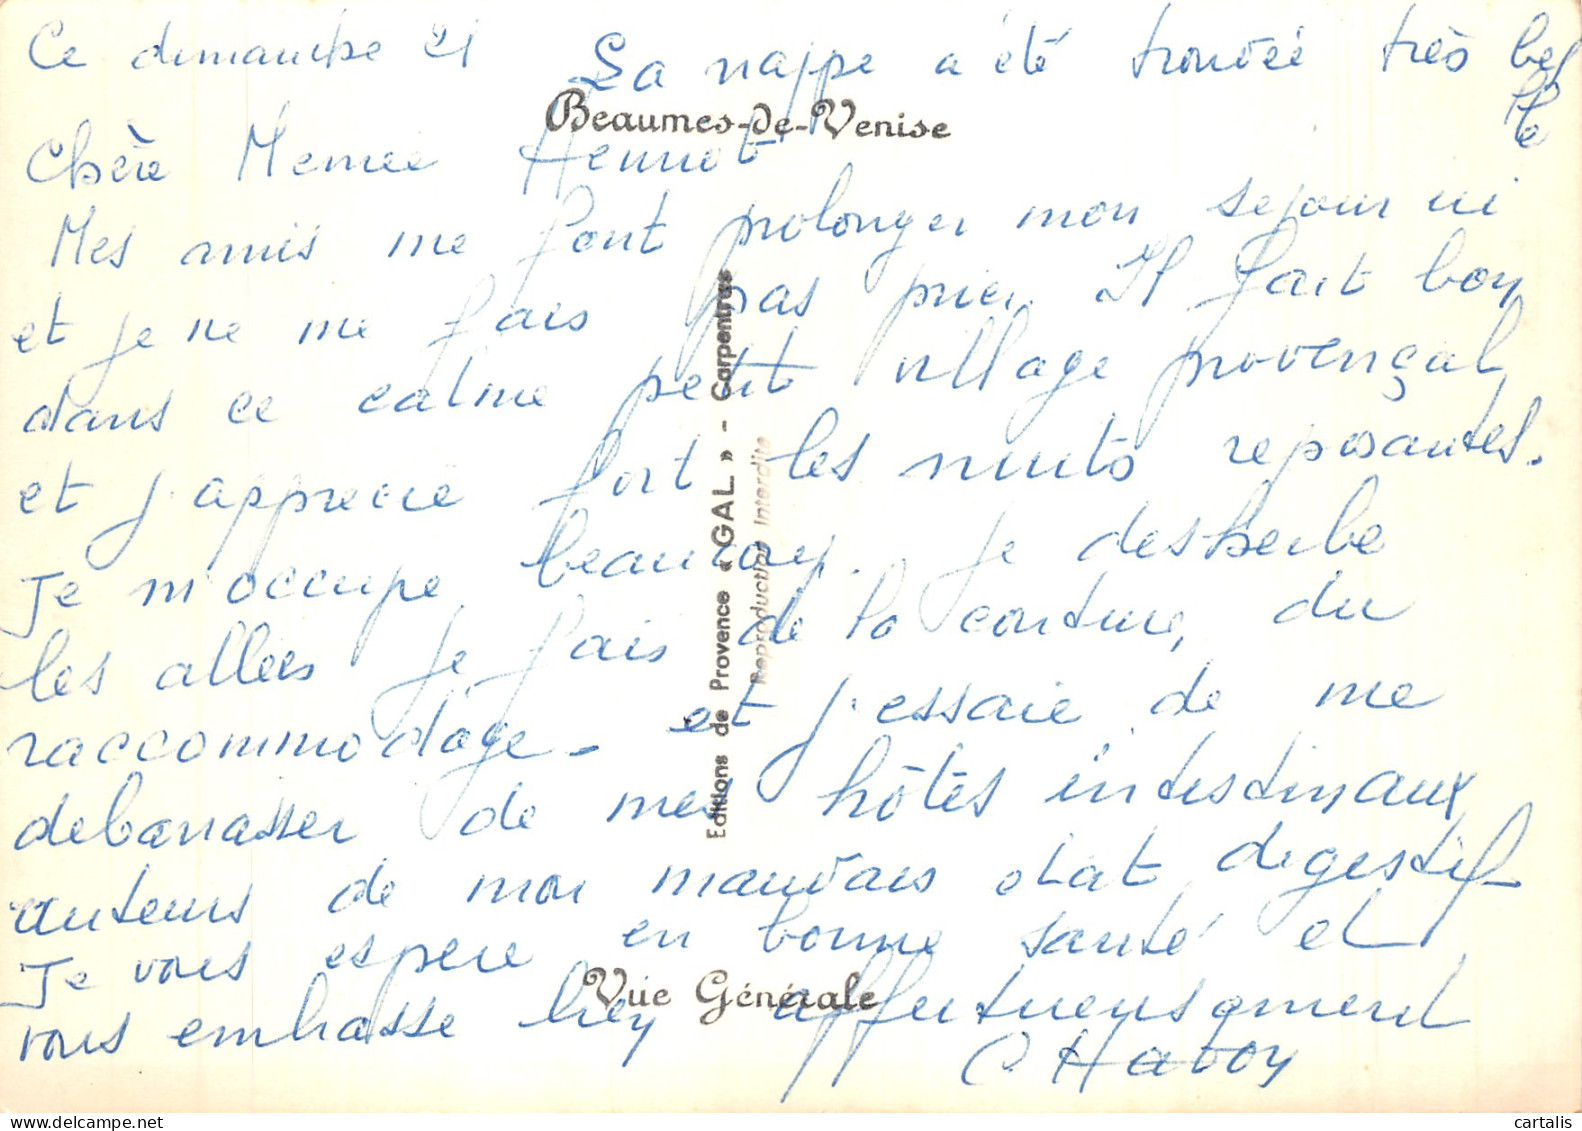 Ce dimanche 21 La nappe a été trouvée très bel
le
Beaumes-de-Venise
Chère Memee Henriet
Mes amis me font prolonger mon sejour ici
et je ne me fais pas prier. Il fait bon
dans ce calme petit village provençal,
et j'apprecie fort les nuits reposantes.
Je m'occupe beaucoup. je desherbe
les allées je fais de la couture, du
raccommodage - et j'essaie de me
debarrasser de mes hôtes intestinaux
auteurs de mon mauvais etat digestif
Je vous espere en bonne santé et
vous embrasse bien affectueusement
C Hatoy
Vue Générale
Editions de Provence « GAL » - Carpentras
Reproduction Interdite
cartalis